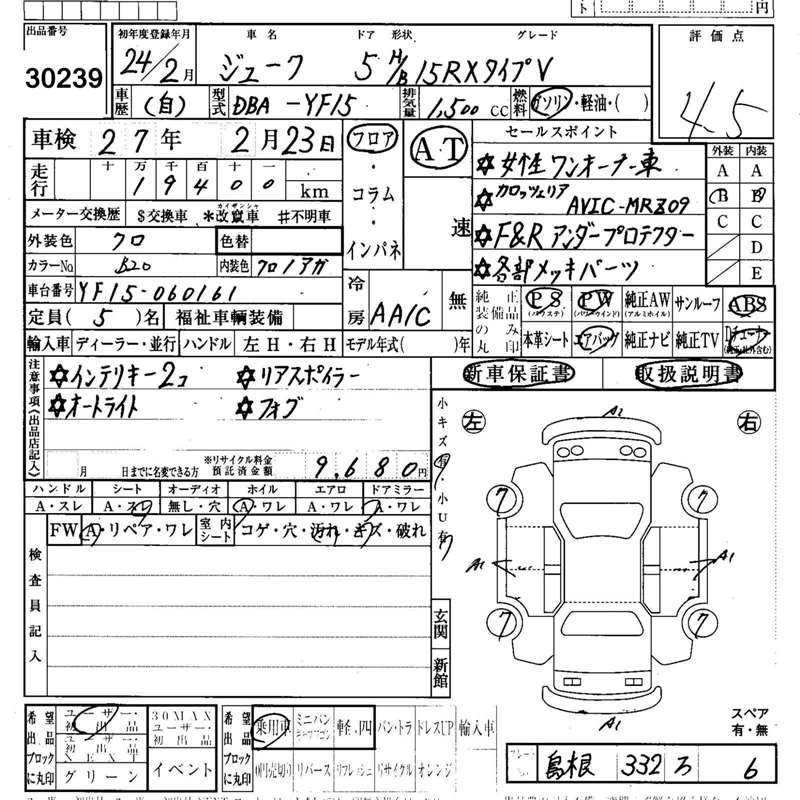 円
出品番号 初年度登録年月 車名 ドア 形状 グレード 評価点
30239 24/2月 ジューク 5 H/B 15RXタイプV 4.5
車歴 (自) 型式 DBA-YF15 排気量 1,500CC 燃料 ガソリン・軽油・( )
車検 27年 2月23日 フロア・コラム・インパネ AT 速 セールスポイント 外装 内装
走行 十万千百十一 19400km ☆女性ワンオーナー車 A A
メーター交換歴 $交換車 *改竄車 カイザンシャ #不明車 ☆カロッツェリア AVIC-MRZ09 B B
外装色 クロ 色替 ☆F&Rアンダープロテクター C C
D
カラーNo B20 内装色 クロ/アカ ☆各部メッキパーツ E
車台番号 YF15-060161 冷房 AAC 無 純正装備品のみ丸印 PS (パワステ) PW (パワーウインド) 純正AW (アルミホイル) サンルーフ ABS
定員(5)名 福祉車輌装備 本革シート エアバッグ 純正ナビ 純正TV
輸入車 ディーラー・並行 ハンドル 左H・右H モデル年式( )年
新車保証書 取扱説明書
注意事項(出品店記入)
☆インテリキー2コ ☆リアスポイラー
☆オートライト ☆フォグ
月 日までに名変できる方 ※リサイクル料金預託済金額 9,680円
小キズ有・小U有
左 右
A2
ハンドル シート オーディオ ホイル エアロ ドアミラー
A・スレ A・スレ 無し・穴 A・ワレ A・ワレ A・ワレ
FW A・リペア・ワレ 室内シート コゲ・穴・汚れ・キズ・破れ
7 7
A1 A1
7 7
A1
検査員記入
玄関
新館
希望出品ブロックに丸印 ユーザー・初出品 30MAXユーザー・初出品 希望出品ブロックに丸印 乗用車 ミニバン 軽・四 バン・トラ ドレスUP 輸入車
ユーザー・初出品NEXT
グリーン イベント リバース リフレッシュ リサイクル オレンジ
スペア 有・無
島根 332 ろ 6